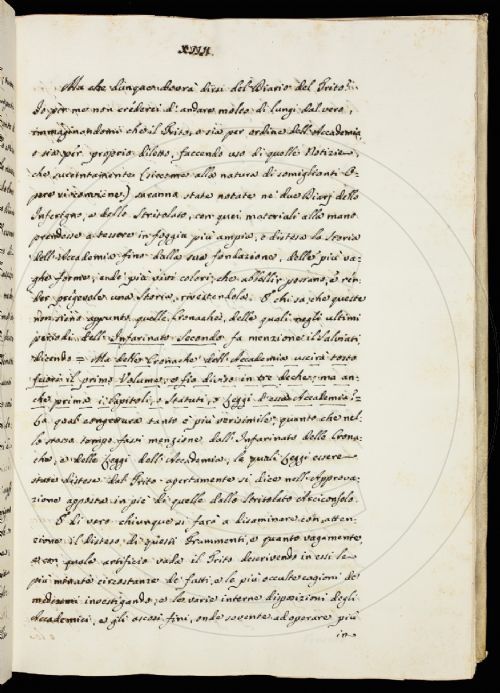 XIII.
Ma che dunque dovrà dirsi del Diario del Trito?
Io per me non crederei di andare molto di lungi dal vero,
immaginandomi che il Trito, o sia per ordine dell'Accademia
o sia per proprio diletto, faccendo uso di quelle Notizie,
che succintamente (siccome alla natura di somiglianti O-
pere si conviene) saranno state notate ne' due Diarj dello
Inferigno, e dello Stritolato, con quei materiali alla mano
prendesse a tessere in foggia più ampia, e distesa la Storia
dell'Accademia fino dalla sua fondazione, delle più va-
ghe forme, e de' più vivi colori, che abbellir possano, e ren-
der pregevole una Storia, rivestendola. E chi sa, che queste
non sieno appunto quelle Cronache, delle quali negli ultimi
periodi dell'Infarinato Secondo fa menzione il Salviati
dicendo = Ma delle Cronache dell'Accademia uscirà tosto
fuora il primo Volume, e fio diviso in tre deche; ma an-
che prima i Capitoli, o Statuti, o Leggi d'essa Accademia =
La qual congettura tanto è più verisimile, quanto che nel-
lo stesso tempo fassi menzione dall'Infarinato delle Crona-
che, e delle Leggi dell'Accademia, le quali Leggi essere
state distese dal Trito apertamente si dice nell'Approva-
zione apposta in piè di quelle dallo Stritolato Arciconsolo.
E di vero chiunque si farà a disaminare con atten-
zione il disteso di questi Frammenti, e quanto vagamente,
e con quale artificio vada il Trito descrivendo in essi le
più minute circostanze de' fatti, e le più occulte cagioni de'
medesimi investigando, e le varie interne disposizioni degli
Accademici, e gli ascosi fini, onde sovente ad operare più
in